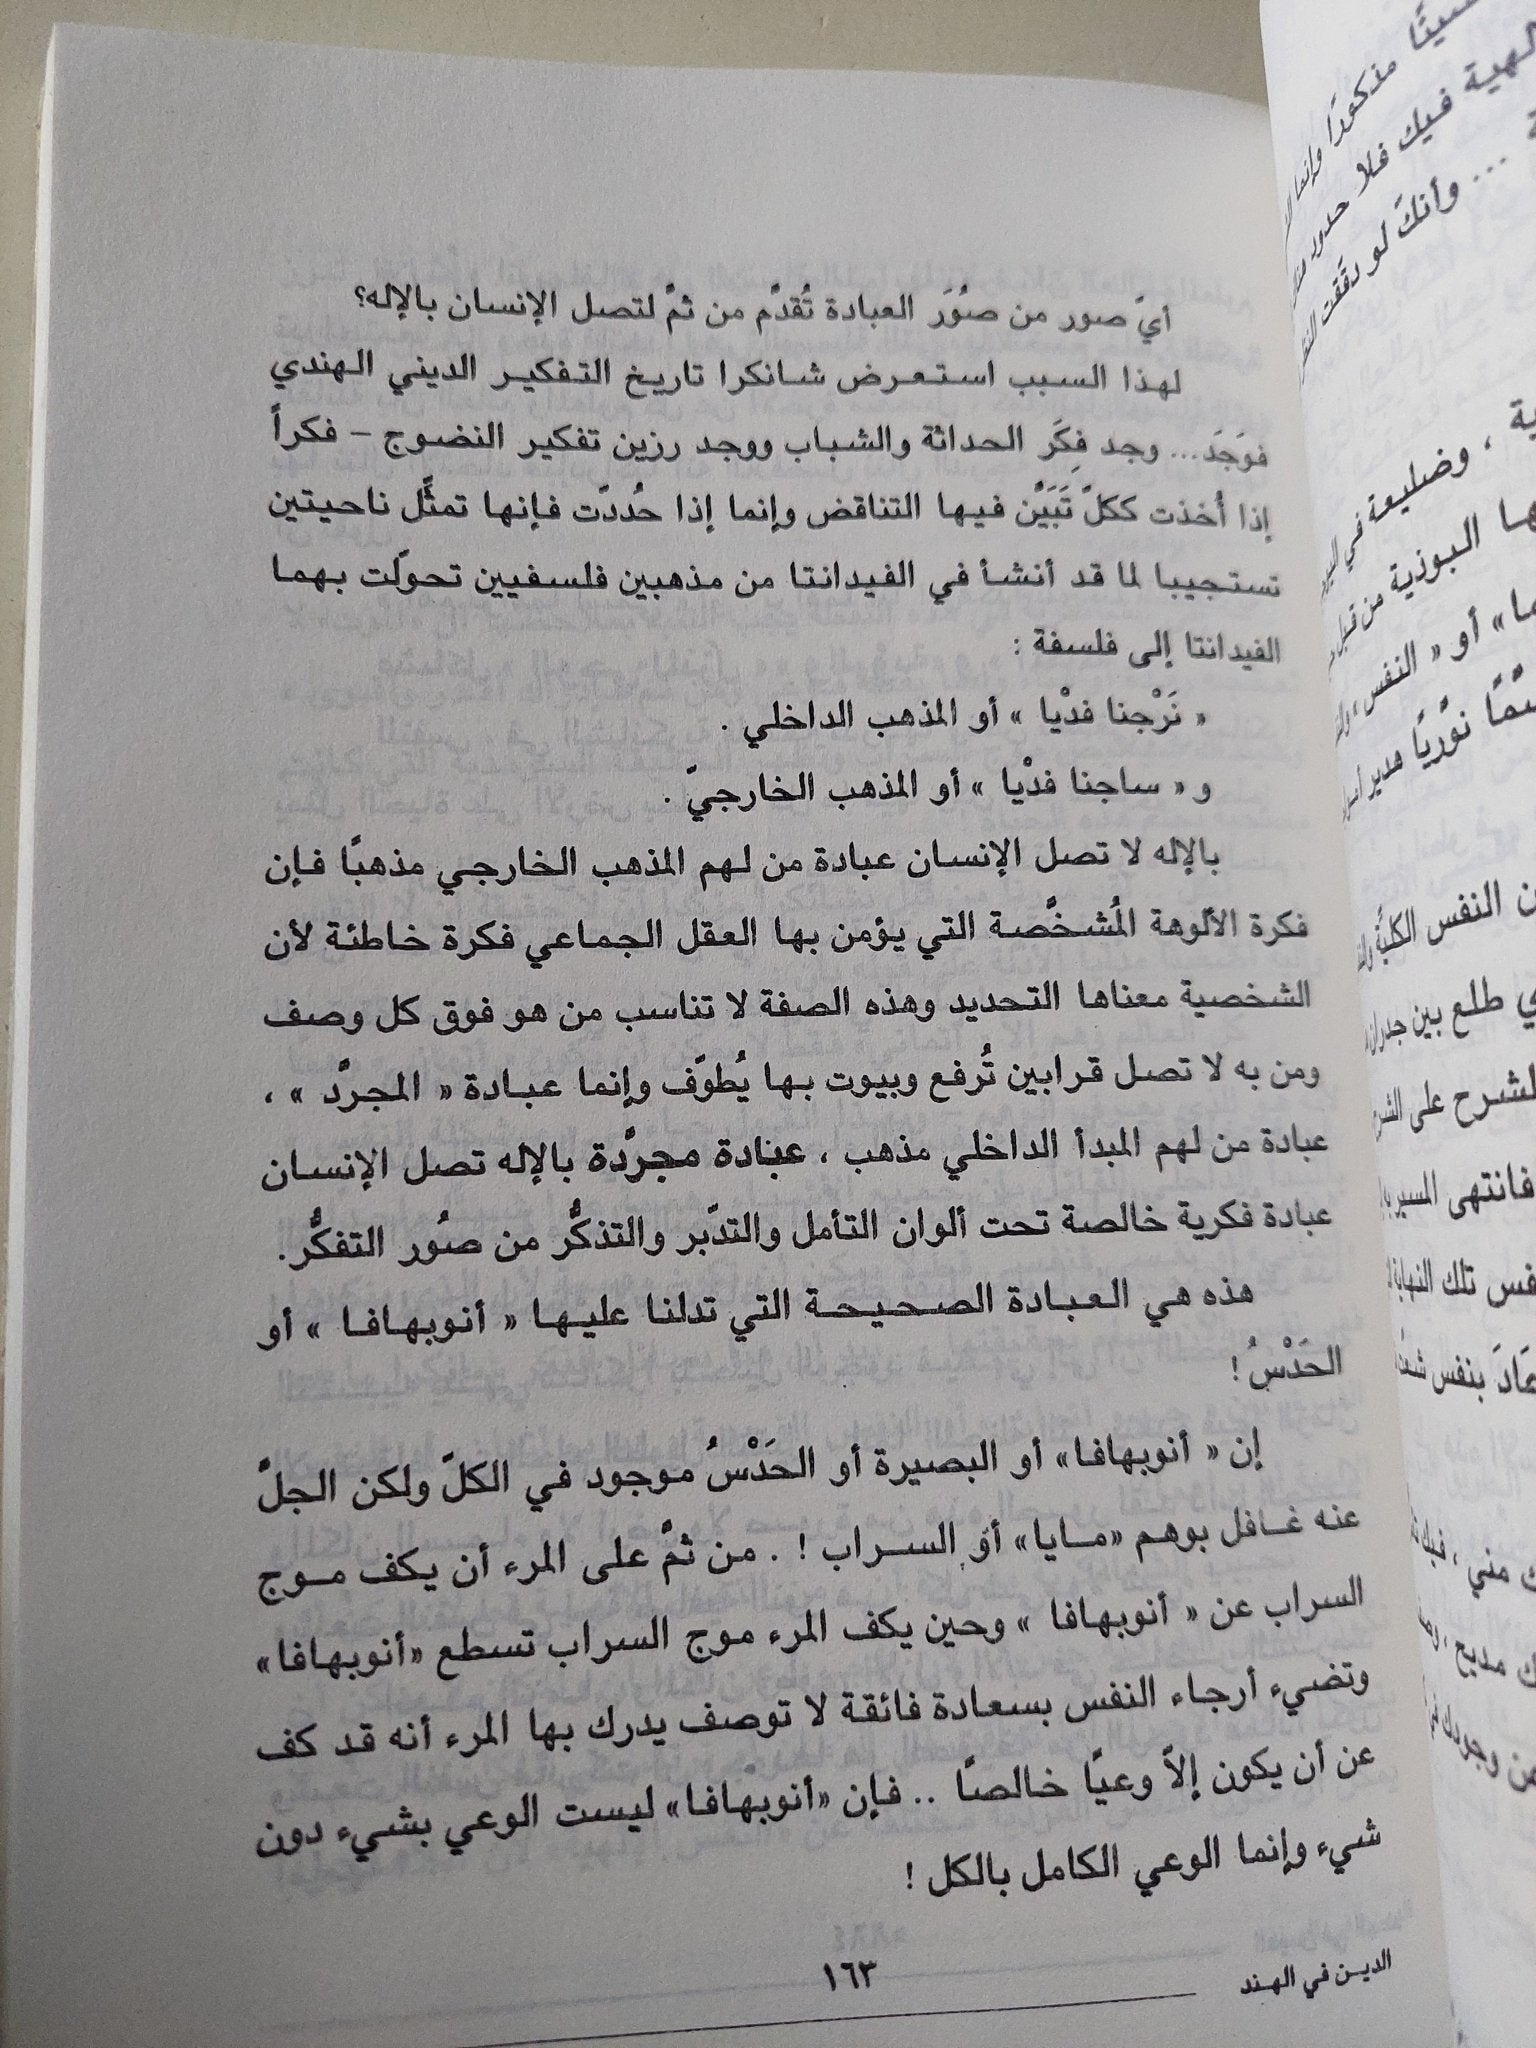 أيّ صور من صُوَر العبادة تُقدَّم من ثمَّ لتصل الإنسان بالإله؟
لهذا السبب استعرض شانكرا تاريخ التفكير الديني الهندي
فوَجَدَ... وجد فِكَر الحداثة والشباب ووجد رزين تفكير النضوج – فكراً
إذا أُخذت ككلّ تَبَيَّن فيها التناقض وإنما إذا حُددّت فإنها تمثَّل ناحيتين
تستجيبا لما قد أنشأ في الفيدانتا من مذهبين فلسفيين تحولّت بهما
الفيدانتا إلى فلسفة :
« نَرْجنا فدْيا » أو المذهب الداخلي .
و « ساجنا فدْيا » أو المذهب الخارجيّ .
بالإله لا تصل الإنسان عبادة من لهم المذهب الخارجي مذهبًا فإن
فكرة الألوهة المُشخَّصة التي يؤمن بها العقل الجماعي فكرة خاطئة لأن
الشخصية معناها التحديد وهذه الصفة لا تناسب من هو فوق كل وصف
ومن به لا تصل قرابين تُرفع وبيوت بها يُطوّف وإنما عبادة « المجرّد » ،
عبادة من لهم المبدأ الداخلي مذهب ، عبادة مجرَّدة بالإله تصل الإنسان
عبادة فكرية خالصة تحت ألوان التأمل والتدّبر والتذكُّر من صوُر التفكُّر.
هذه هي العبادة الصحيحة التي تدلنا عليها « أنوبهافا » أو
الحَدْسُ !
إن « أنوبهافا» أو البصيرة أو الحَدْسُ موجود في الكلّ ولكن الجلَّ
عنه غافل بوهم «مايا» أو السراب ! . من ثمَّ على المرء أن يكف موج
السراب عن « أنوبهافا » وحين يكف المرء موج السراب تسطع «أنوبهافا»
وتضيء أرجاء النفس بسعادة فائقة لا توصف يدرك بها المرء أنه قد كف
عن أن يكون إلاّ وعيًا خالصًا .. فإن «أنوبهافا» ليست الوعي بشيء دون
شيء وإنما الوعي الكامل بالكل !
الدين في الهند
١٦٣
مذكورًا وإنما
فيك فلا حدود
... وأنكَ لو دقّقت
، وضليعة في
البوذية من قبل
أو « النفس »
نوّريًا مدير
النفس الكليَّة
طلع بين جدران
الشرح على
فانتهى المسير
تلك النهاية
بنفس
مني ، فبك
مديح ،
وجودك